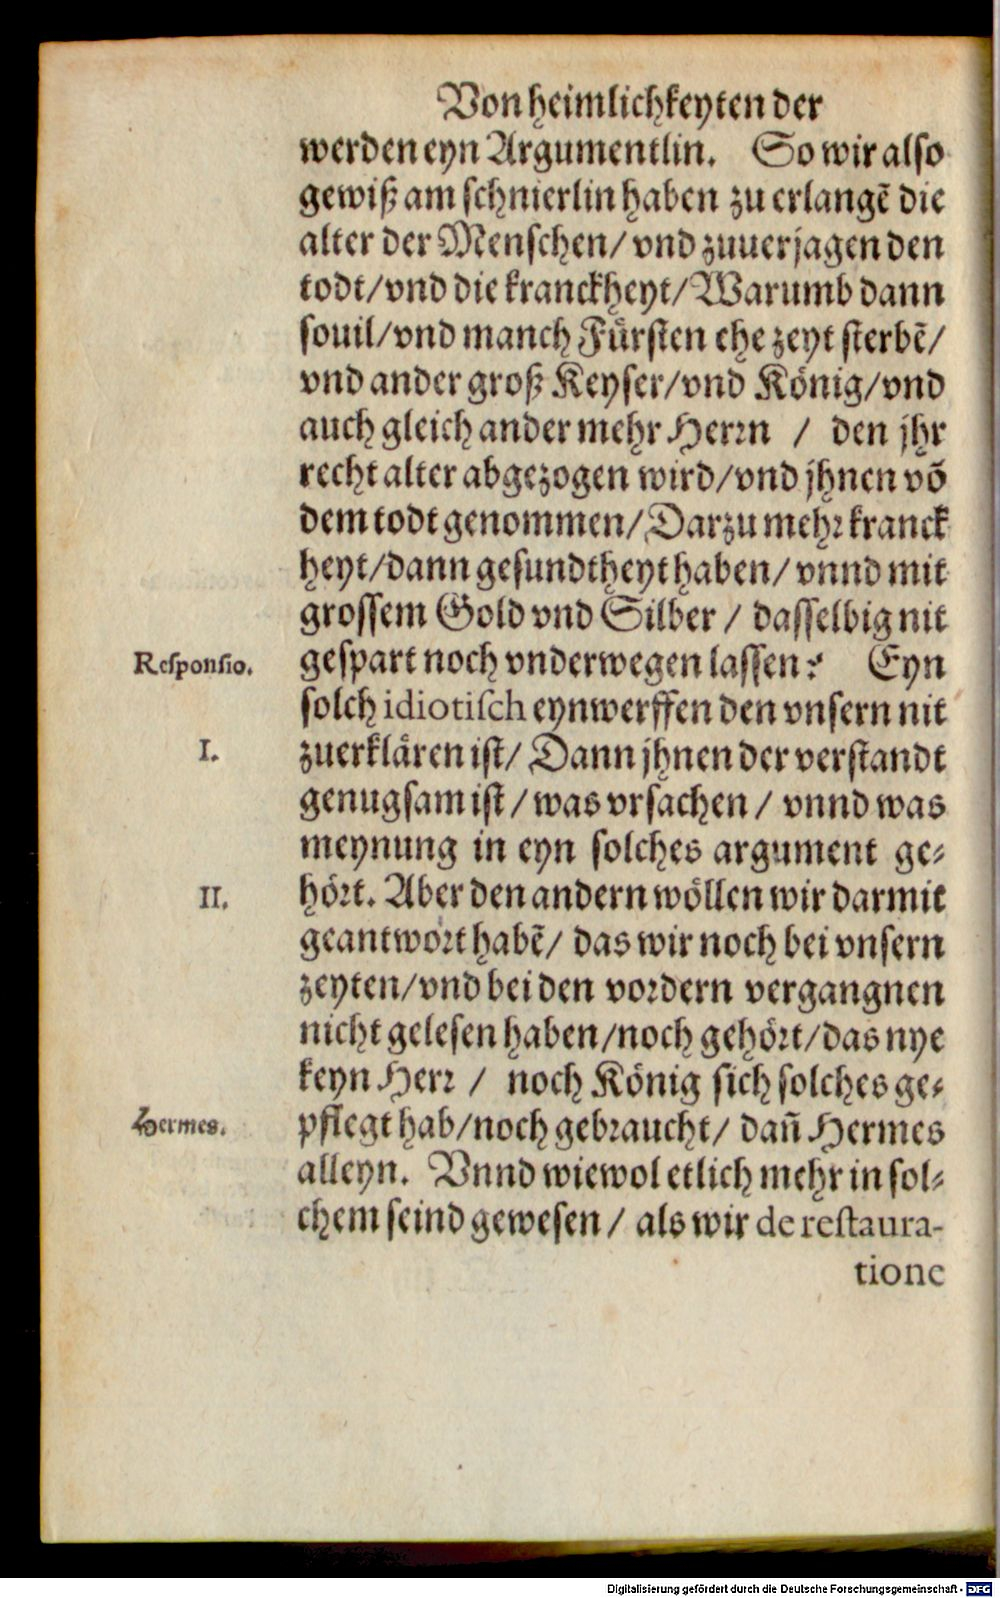 Von heimlichkeyten der
werden eyn Argumentlin. So wir also
gewiß am schnierlin haben zu erlangẽ die
alter der Menschen/ vnd zuuerjagen den
todt/vnd die kranckheyt/Warumb dann
souil/vnd manch Fürsten ehe zeyt sterbẽ/
vnd ander groß Keyser/vnd König/vnd
auch gleich ander mehr Herrn / den jhr
recht alter abgezogen wird/vnd jhnen võ
dem todt genommen/Darzu mehr kranck
heyt/dann gesundtheyt haben/ vnnd mit
grossem Gold vnd Silber / dasselbig nit
Responsio. gespart noch vnderwegen lassen? Eyn
solch idiotisch eynwerffen den vnsern nit
I. zuerklären ist/ Dann jhnen der verstandt
genugsam ist / was vrsachen / vnnd was
meynung in eyn solches argument ge-
II. hört. Aber den andern wöllen wir darmit
geantwort habẽ/ das wir noch bei vnsern
zeyten/vnd bei den vordern vergangnen
nicht gelesen haben/noch gehört/das nye
keyn Herr / noch König sich solches ge-
Hermes. pflegt hab/noch gebraucht/ dañ Hermes
alleyn. Vnnd wiewol etlich mehr in sol-
chem seind gewesen / als wir de restaura-
tione
Digitalisierung gefördert durch die Deutsche Forschungsgemeinschaft - DFG